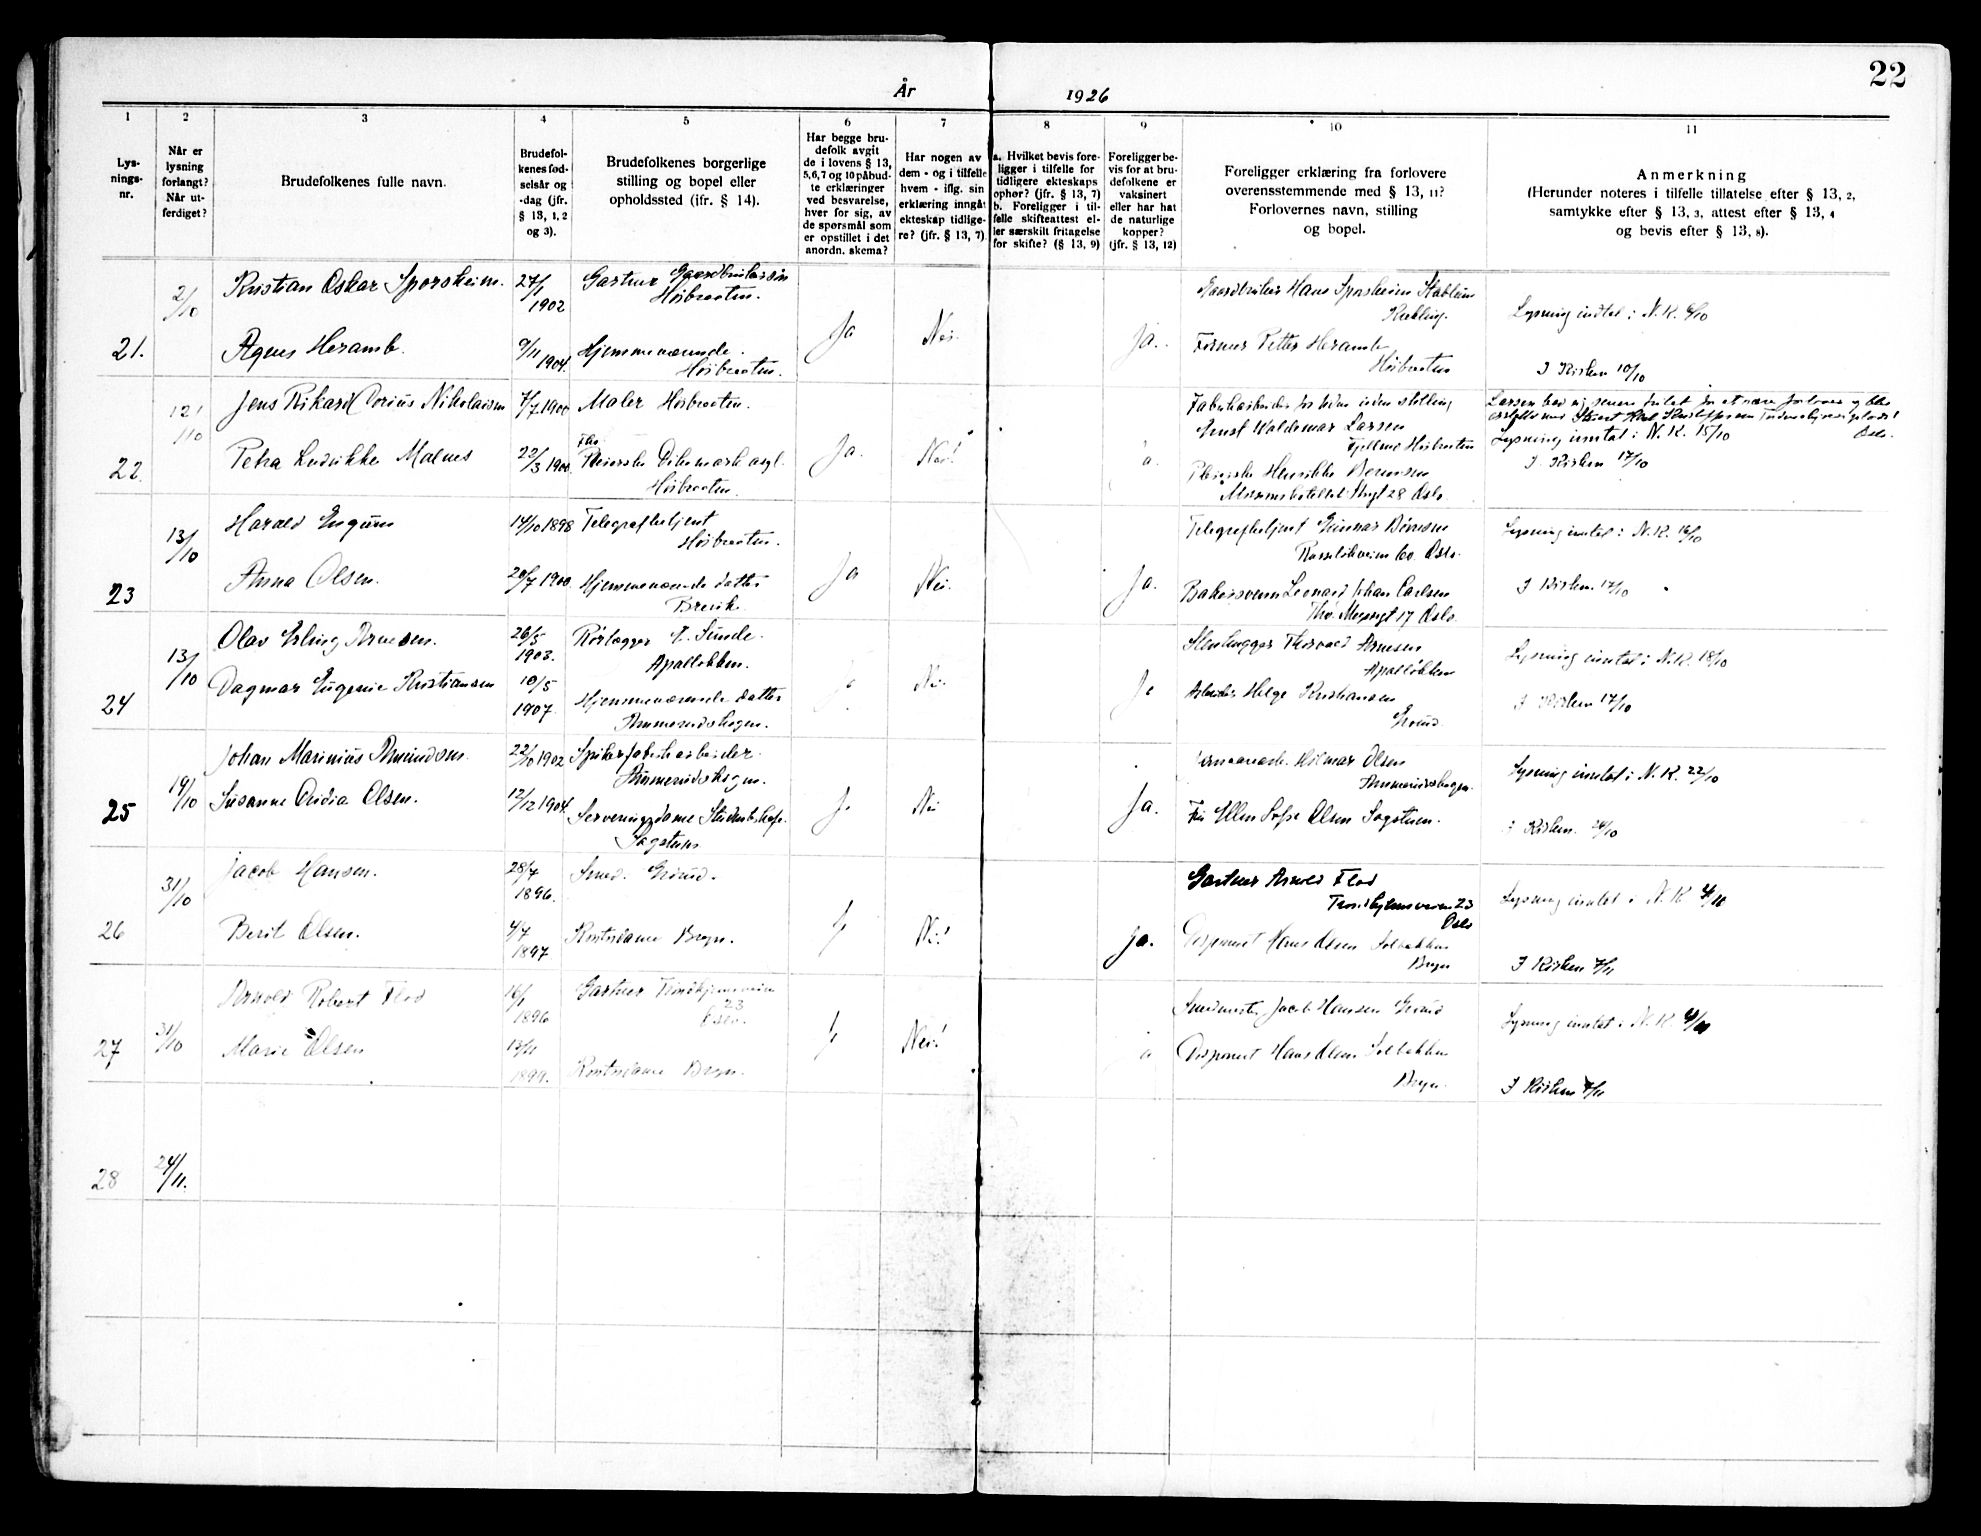 22
År 1926
1
2
3
4
5
6
7
8
9
10
11
Lys-
nings-
nr.
Når er
lysning
forlangt?
Når ut-
ferdiget?
Brudefolkenes fulle navn.
Brudefol-
kenes fød-
selsår og
-dag (jfr.
§ 13, 1, 2
og 3).
Brudefolkenes borgerlige
stilling og bopel eller
opholdssted (ifr. § 14).
Har begge bru-
defolk avgit
de i lovens § 13,
5,6,7 og 10 påbud-
te erklæringer
ved besvarelse,
hver for sig, av
de spørsmål som
er opstillet i det
anordn. skema?
Har nogen av
dem - og i tilfelle
hvem - iflg. sin
erklæring inngåt
ekteskap tidlige-
re? (jfr. § 13, 7)
a. Hvilket bevis fore-
ligger i tilfelle for
tidligere ekteskaps
ophør? (jfr. § 13, 7)
b. Foreligger i til-
felle skifteattest el-
ler særskilt fritagelse
for skifte? (§ 13, 9)
Foreligger be-
vis for at bru-
defolkene er
vaksinert
eller har hat
de naturlige
kopper?
(jfr. § 13, 12)
Foreligger erklæring fra forlovere
overensstemmende med § 13, 11?
Forlovernes navn, stilling
og bopel.
Anmerkning
(Herunder noteres i tilfelle tillatelse efter § 13, 2,
samtykke efter § 13, 3, attest efter § 13, 4
og bevis efter § 13, 8).
21.
2/10
Kristian Oskar Sporsheim.
27/1 1902
Gartner
Høibraaten.
Agnes Heramb.
9/11 1904.
Hjemmeværende.
Høibraaten.
Ja
Nei.
Ja.
Gaardbruker Hans Sporsheim
Petter Heramb
Høibraaten
Lysning inntat i N. K. 6/10
I Kirken 10/10
22.
12/10
Jens Rikard Dorius Nikolaisen
7/7 1900
Maler Høibraaten.
Petra Ludvikke Malnes
22/3 1900
Dikemark asyl.
Høibraaten.
Ja.
Nei!
Ernst Waldemar Larsen
Fjellmo Høibraaten
Pleierske Henrikke
28 Oslo
Oslo.
Lysning inntat i N. K. 15/10
I Kirken 17/10
23
13/10
Harald Engum
14/10 1898
Telegrafbetjent
Høibraaten.
Anna Olsen.
20/7 1900
Hjemmeværende datter
Brevik.
Ja
Nei.
Ja.
Telegrafbetjent Gunnar
60. Oslo.
Bakersvenn Leonard Johan Carlsen
Thv. Meyersgt 17 Oslo.
Lysning inntat i N. K. 16/10
I Kirken. 17/10
24
13/10
Olav Erling Arnesen.
26/5 1903.
Rørlegger
Apalløkken.
Dagmar Eugenie Kristiansen
10/5 1907.
Hjemmeværende datter
Ammerudskogen.
Nei.
Ja
Stenhugger Thorvald Arnesen
Apalløkken
Arbeider Helge Kristiansen
Grorud.
Lysning inntat i N. K. 18/10
I Kirken 17/10
25
19/10
Johan Marinius Amundsen.
22/10 1902
Spikerfabrikarbeider.
Ammerudskogen.
Susanne Ovidia Olsen.
12/12 1904.
Serveringsdame
Sagstuen
Ja
Nei
Ja.
Hilmar Olsen
Ammerudskogen.
Ellen Sofie Olsen Sagstuen.
Lysning inntat i N. K. 22/10
I Kirken. 24/10
26
31/10
Jacob Hansen.
28/7 1896.
Smed. Grorud.
Berit Olsen.
4/7 1897
Kontordame Bryn.
Nei!
Ja.
Gartner Arnold Flod
Trondhjemsveien 23
Oslo
Disponent Hans Olsen Solbakken
Bryn
Lysning inntat i N. K. 4/10
I Kirken 7/11
27
31/10
Arnold Robert Flod
16/1 1896
Gartner Trondhjemsveien
23
Oslo.
Marie Olsen
13/11 1899.
Kontordame Bryn.
Nei!
Smedmester Jacob Hansen Grorud
Disponent Hans Olsen Solbakken
Bryn.
Lysning inntat i N. K.
I Kirken 7/11
28
24/11.